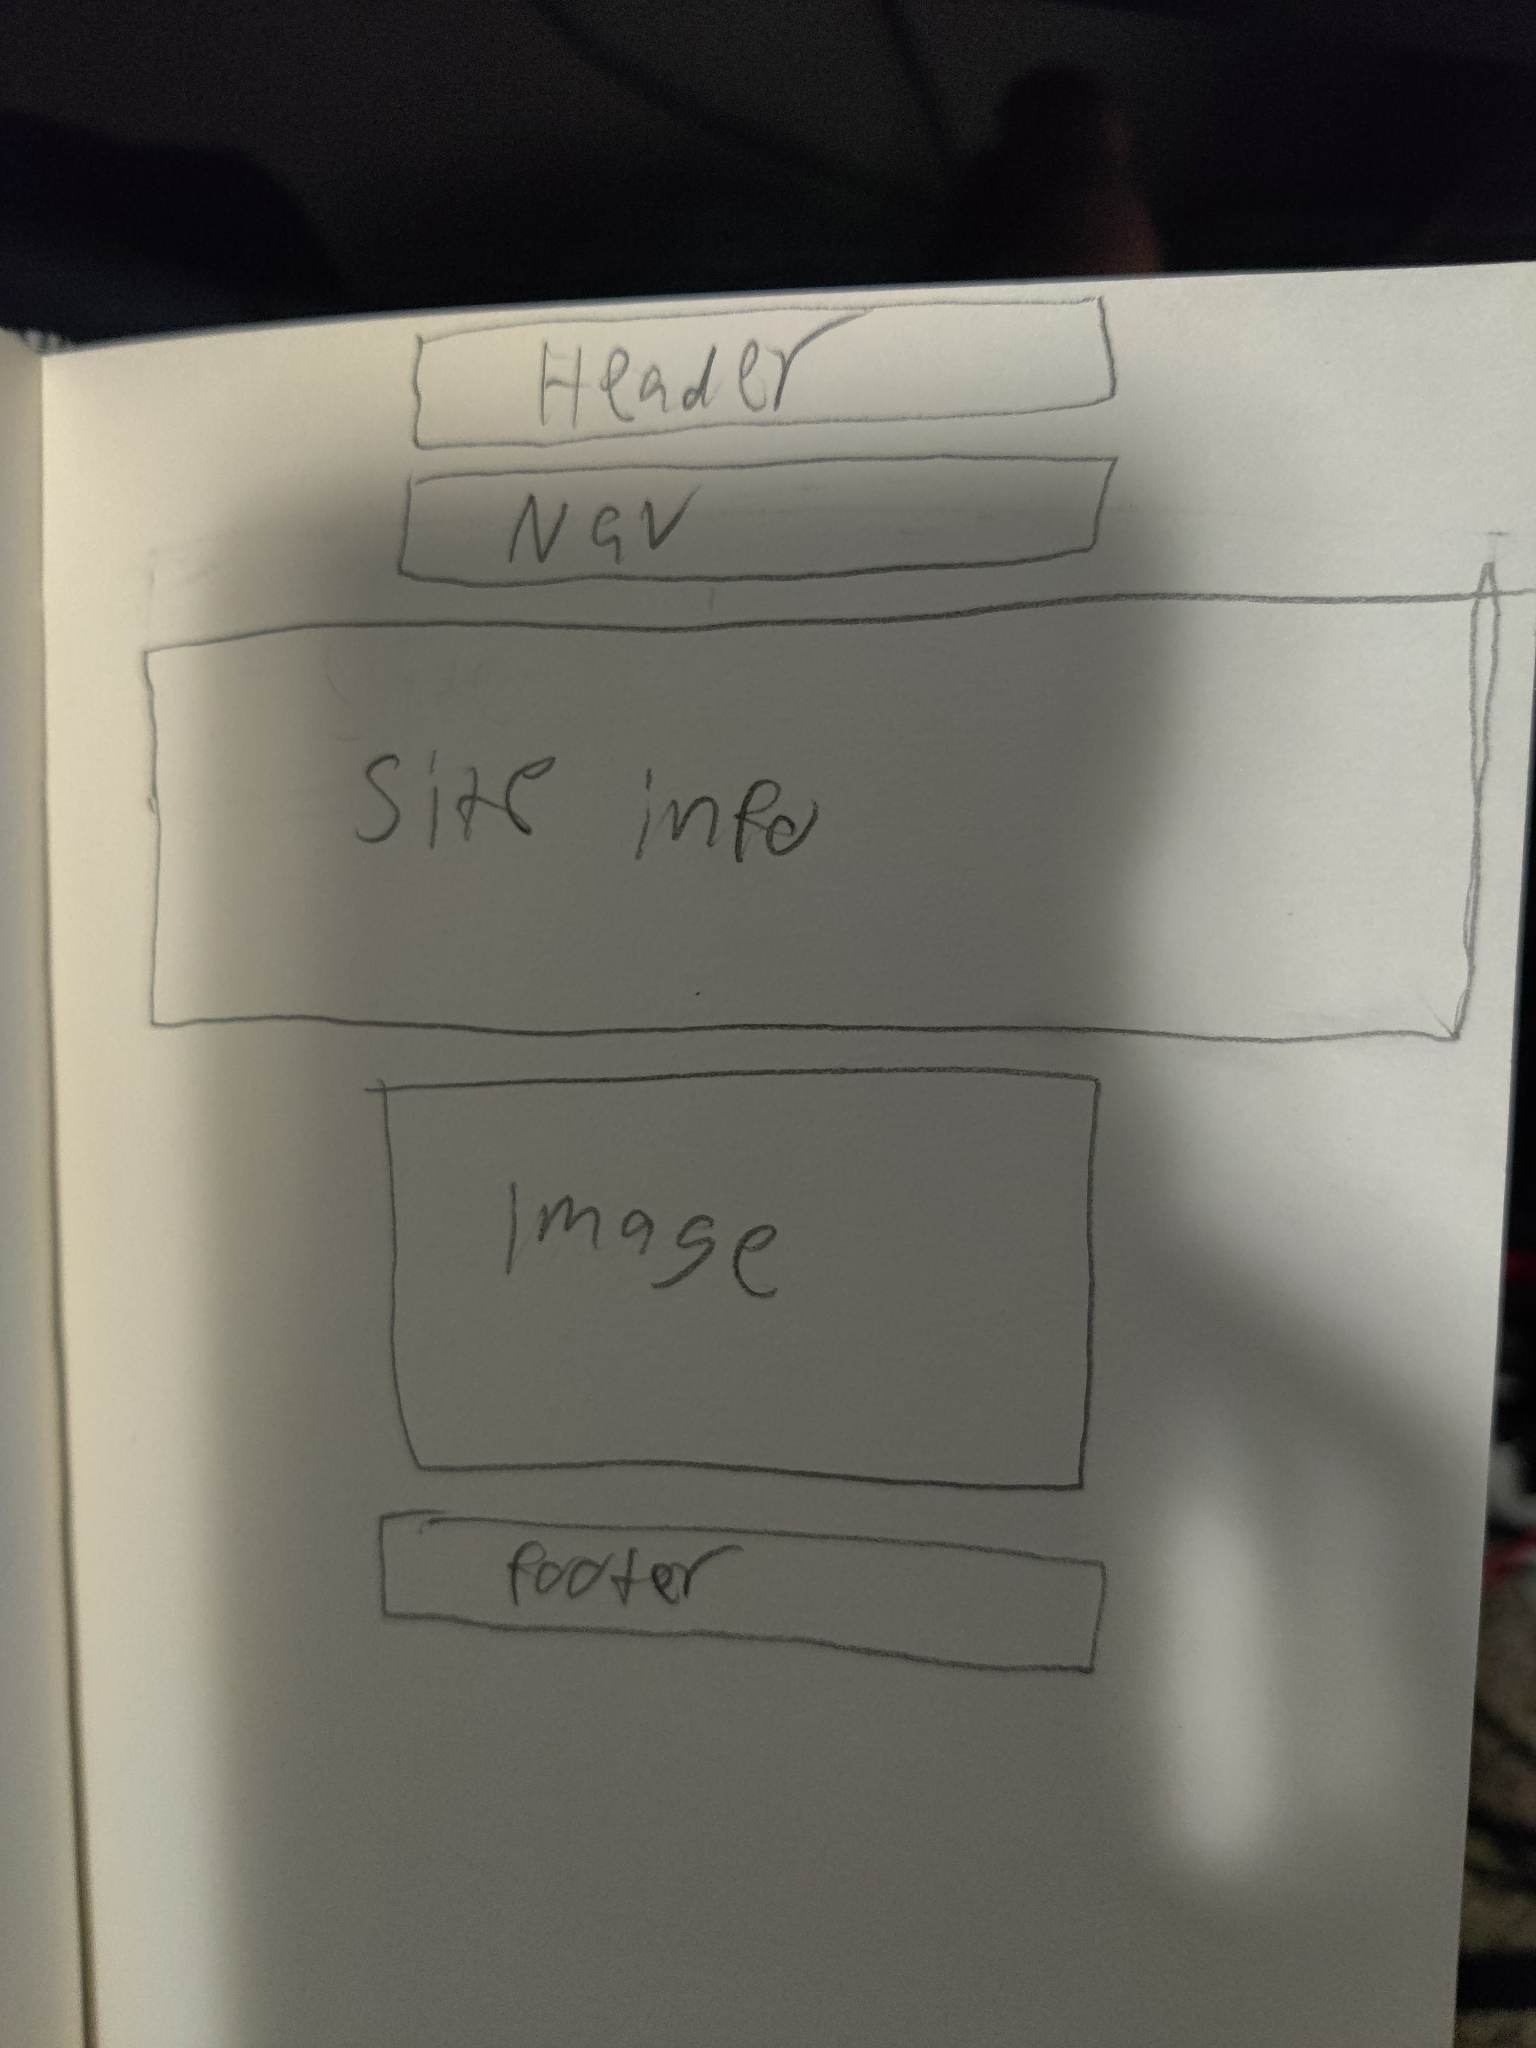 Header
Nav
Site info
Image
footer